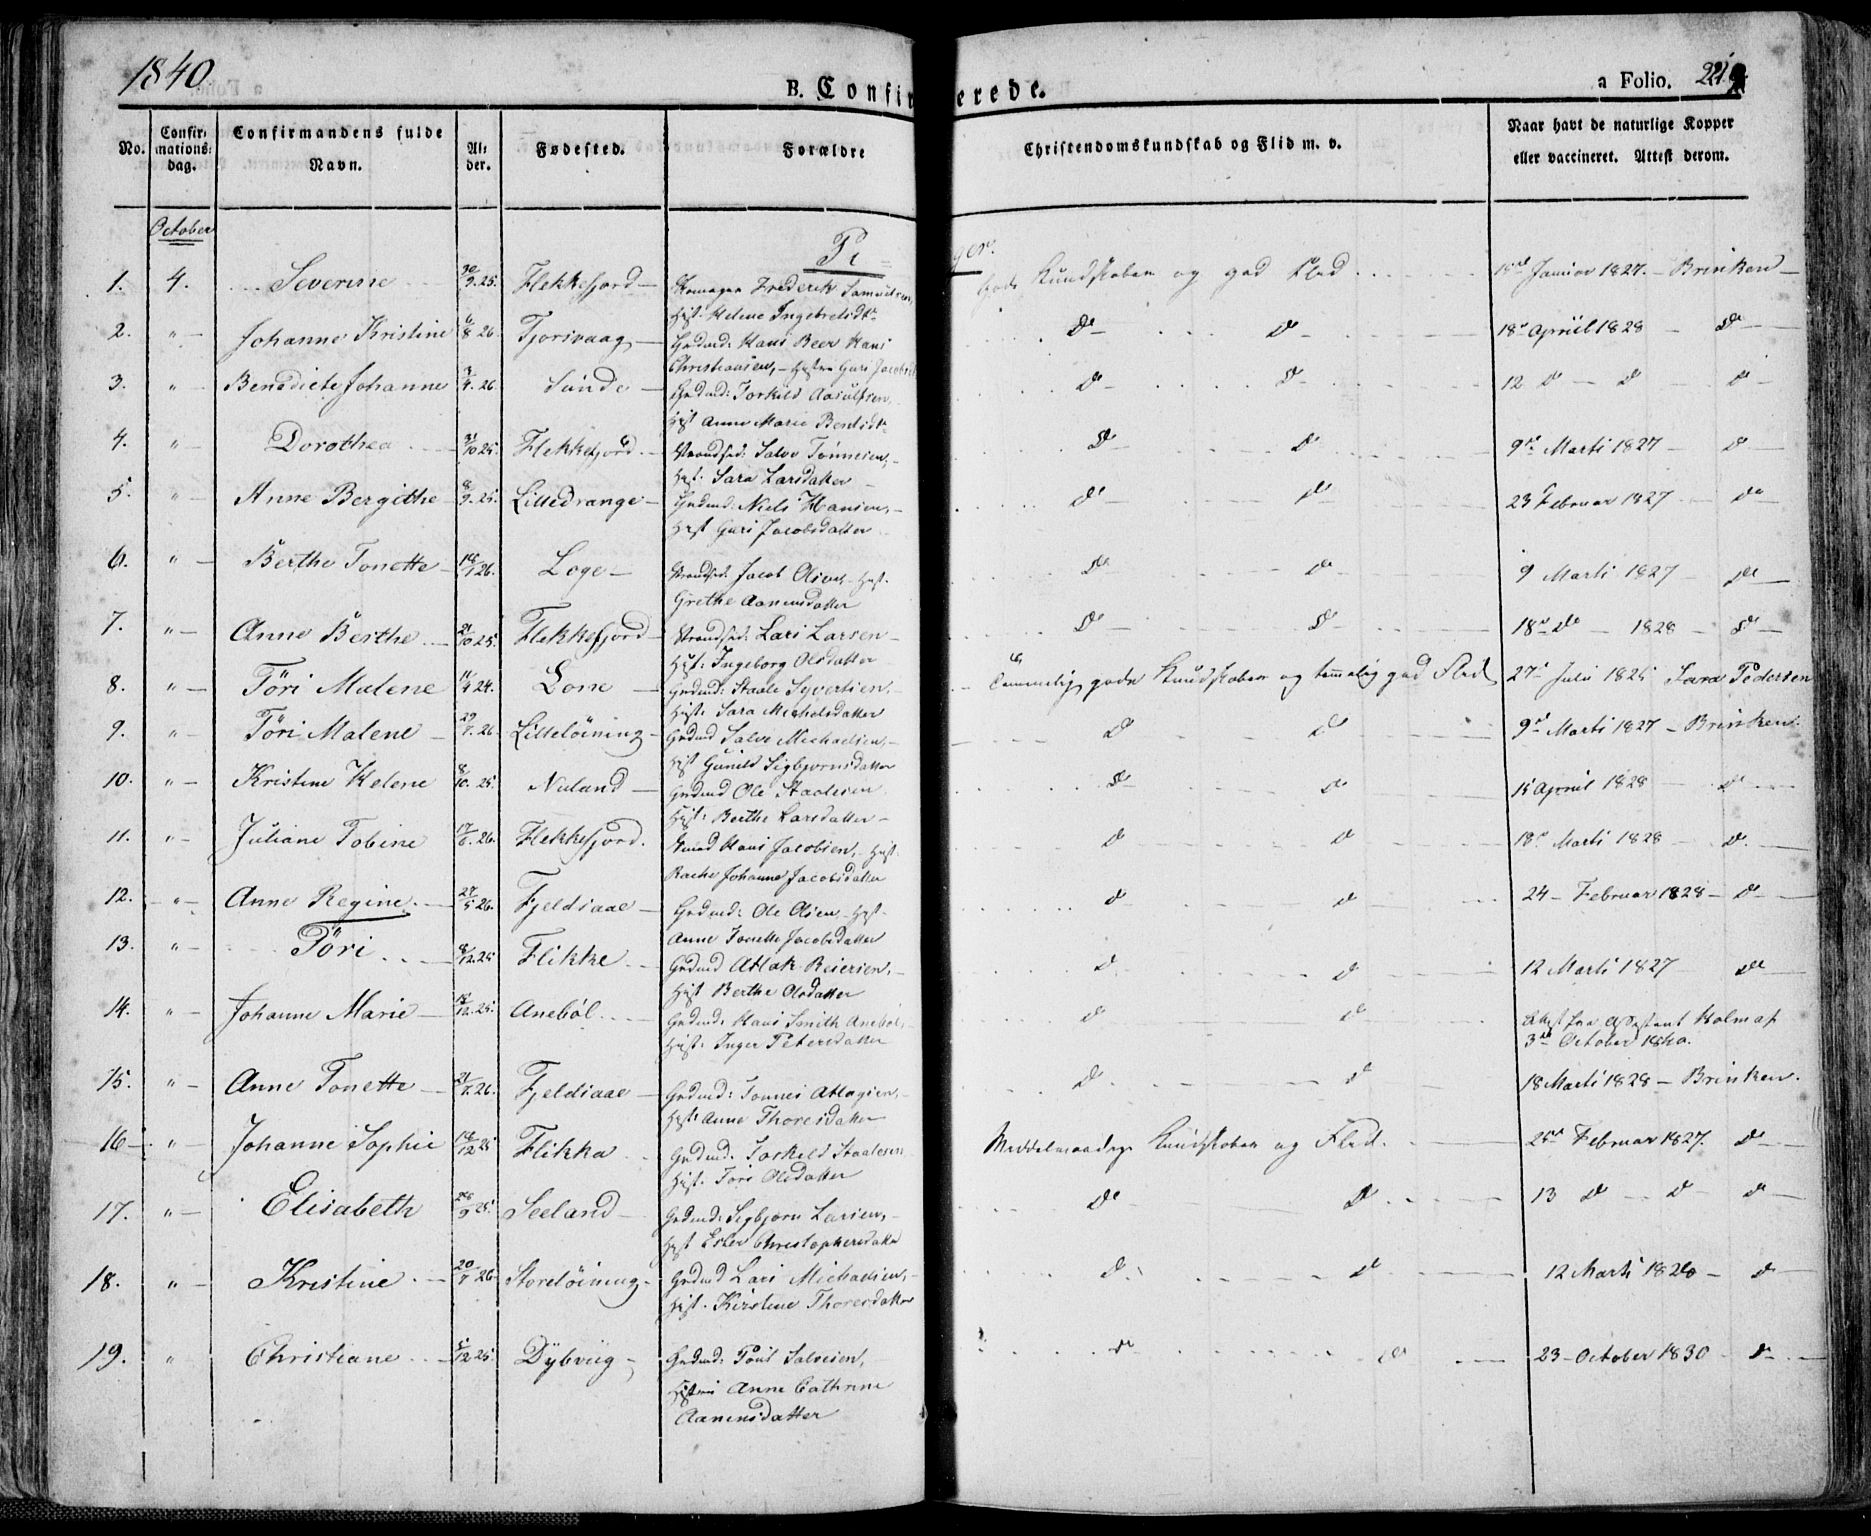 1840
B. Confirmerede.
a Folio. 221
No.
Confirmations-dag.
Confirmandens fulde Navn.
Alder.
Fødested.
Forældre
Christendomskundskab og Flid m. v.
Naar havt de naturlige Kopper eller vaccineret. Attest derom.
October
Piger.
1. 4. Severine 30/9 25. Flekkefjord Frederik Samuelsen, Hust. Helene Ingebretsdtr Gode Kundskaber og god Flid Januar 1827. Brinken
2. " Johanne Kristine 6/8 26 Tjorsvaag Grdmd: Hans Beer Hans Christiansen, Hustru Guri D° D° 18 April 1828 D°
3. " Benedicte Johanne 26 Sunde Grdmd: Torkild Hust Anne Marie Bentsdtr D° D° 12 D° D° D°
4. " Dorothea 31/10 25. Flekkefjord Strandsid: Salve Tønnesen, Hust: Sara Larsdatter D° D° 9de Marti 1827 D°
5. " Anne Bergithe 8/9 25. Lilledrange Grdmd: Niels Hansen, Hust Guri Jacobsdatter D° D° 23 Februar 1827 D°
6. " Berthe Tonette 18/1 26. Loge Strandsid: Jacob Olsen, Hust. Grethe Aanensdatter D° D° 9 Marti 1827 D°
7. " Anne Berthe 21/10 25. Flekkefjord Strandsid: Lars Larsen Hust: Ingeborg Olsdatter D° D° 18de D° 1828 D°
8. " Töri Malene 24. Lone Grdmd: Staale Syvertsen, Hust: Sara Michelsdatter Temmelig gode Kundskaber og temmelig god Flid 27 Juli 1825 Lars Pedersen
9. " Töri Malene 26 Lilleløining Grdmd Salve Michaelsen, Hust Gunild Sigbjørnsdatter D° D° 9de Marti 1827 Brinken.
10. " Kristine Helene 8/10. 25. Nuland Grdmd Ole Staalesen Hust: Berthe Larsdatter D° D° 15 April 1828 D°
11. " Juliane Tobine 17/6. 26. Flekkefjord. Smed Hans Jacobsen, Hust. Johanne Jacobsdatter D° D° 18 Marti 1828 D°
12. " Anne Regine 27/5 26. Fjeldsaae Grdmd: Ole Olsen, Hust. Anne Tonette Jacobsdatter D° D° 24 Februar 1828 D°
13. " Töri 8/12. 25 Flikke Grdmd Atlak Reiersen, Hust Berthe Olsdatter D° D° 12 Marti 1827 D°
14. " Johanne Marie 18/12. 25. Anebøl Grdmd: Hans Smith Anebøl, Hust: Inger Petersdatter D° D° Attest fra Assistent Holm af 3die October 1840.
15. " Anne Tonette 26. Fjeldsaae Grdmd: Tønnes Atlagsen, Hust: Anne Thoresdatter D° D° 18 Marti 1828 Brinken.
16 " Johanne Sophie 18/12 25 Flikka Grdmd. Torkild Staalesen Hust. Töri Olsdatter Middelmaadige Kundskaber og Flid. 25de Februar 1827. D°
17. " Elisabeth 26/9 25. Seeland Grdmd: Sigbjørn Larsen, Hust Christophersdatter D° D° 13 D° D° D°
18. " Kristine 20/7 26 Storeløining Grdmd Lars Michaelsen, Hust. Kirstine Thoresdatter D° D° 12 Marti 1828 D°
19. " Christiane 5/12 25 Dybvig Grdmd: Salvesen, Hustru Anne Cathrine Aanensdatter D° D° 23 October 1830 D°